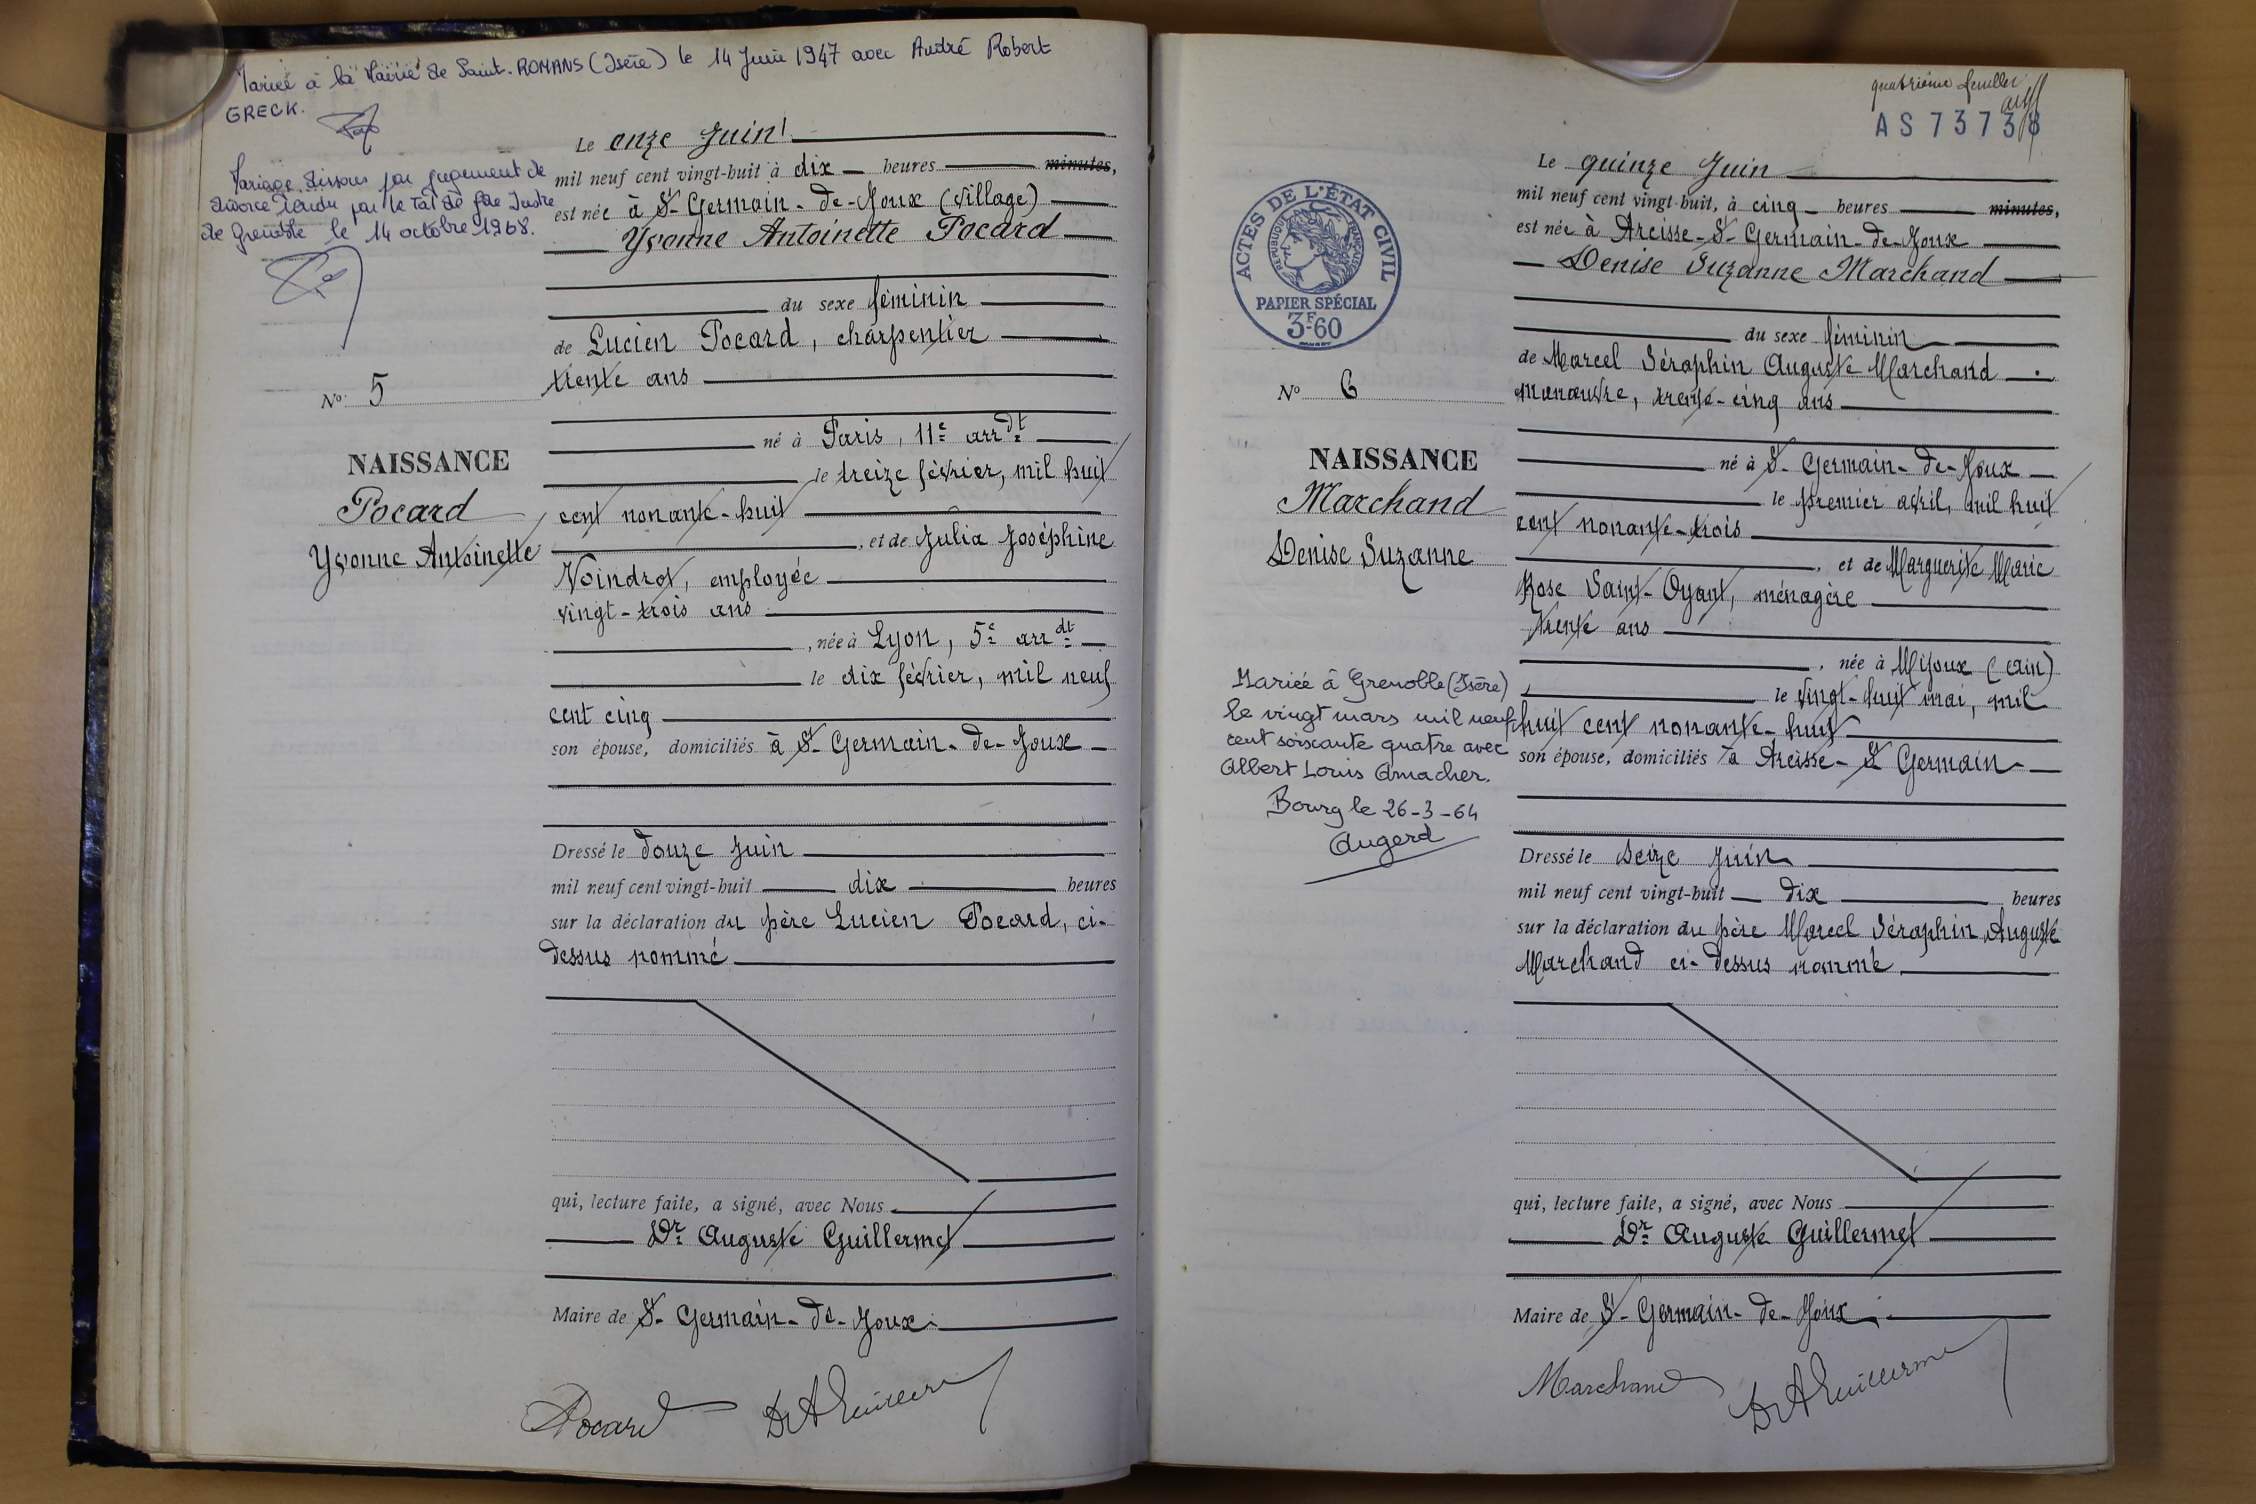 Mariée à la Mairie de Saint-ROMANS (Isère) le 14 Juin 1947 avec André Robert
GRECK.
Mariage dissous par jugement de
divorce rendu par le Tal de gde Instce
de Grenoble le 14 octobre 1968.
N° 5
NAISSANCE
Pocard
Yvonne Antoinette
Le onze Juin
mil neuf cent vingt-huit à dix heures minutes,
est née à St-Germain-de-Joux (Village)
Yvonne Antoinette Pocard
du sexe féminin
de Lucien Pocard, charpentier
trente ans
né à Paris, 11e arrdt
le treize février, mil huit
cent nonante-huit
, et de Julia Joséphine
Voindrot, employée
vingt-trois ans
, née à Lyon, 5e arrdt
le dix février, mil neuf
cent cinq
son épouse, domiciliés à St-Germain-de-Joux
Dressé le douze juin
mil neuf cent vingt-huit dix heures
sur la déclaration du père Lucien Pocard, ci-
dessus nommé
qui, lecture faite, a signé, avec Nous
Dr Auguste Guillermet
Maire de St-Germain-de-Joux
Pocard DrAGuillerm
quatrième feuillet
AS 7373
ACTES DE L'ÉTAT CIVIL
RÉPUBLIQUE FRANÇAISE
PAPIER SPÉCIAL
3F60
N° 6
NAISSANCE
Marchand
Denise Suzanne
Mariée à Grenoble (Isère)
le vingt mars mil neuf
cent soixante quatre avec
Albert Louis Amacher.
Bourg le 26-3-64
Augerd
Le quinze Juin
mil neuf cent vingt-huit, à cinq heures minutes,
est née à Arcisse-St-Germain-de-Joux
Denise Suzanne Marchand
du sexe féminin
de Marcel Séraphin Auguste Marchand
manœuvre, trente-cinq ans
né à St-Germain-de-Joux
le premier avril, mil huit
cent nonante-trois
, et de Marguerite Marie
Rose Saint-Oyant, ménagère
trente ans
, née à Mijoux (Ain)
le vingt-huit mai, mil
huit cent nonante-huit
son épouse, domiciliés à Arcisse-St Germain
Dressé le seize Juin
mil neuf cent vingt-huit dix heures
sur la déclaration du père Marcel Séraphin Auguste
Marchand ci-dessus nommé
qui, lecture faite, a signé, avec Nous
Dr Auguste Guillermet
Maire de St-Germain-de-Joux
Marchand DrAGuillerme